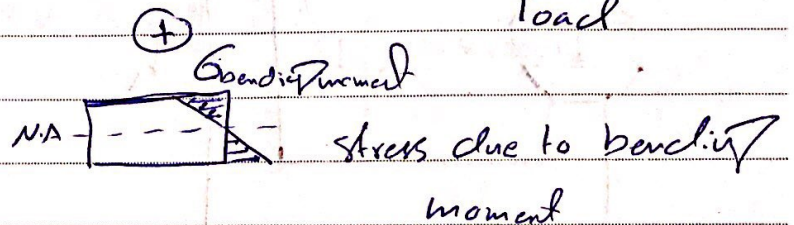 load
+
σbending moment
N.A
stress due to bending
moment